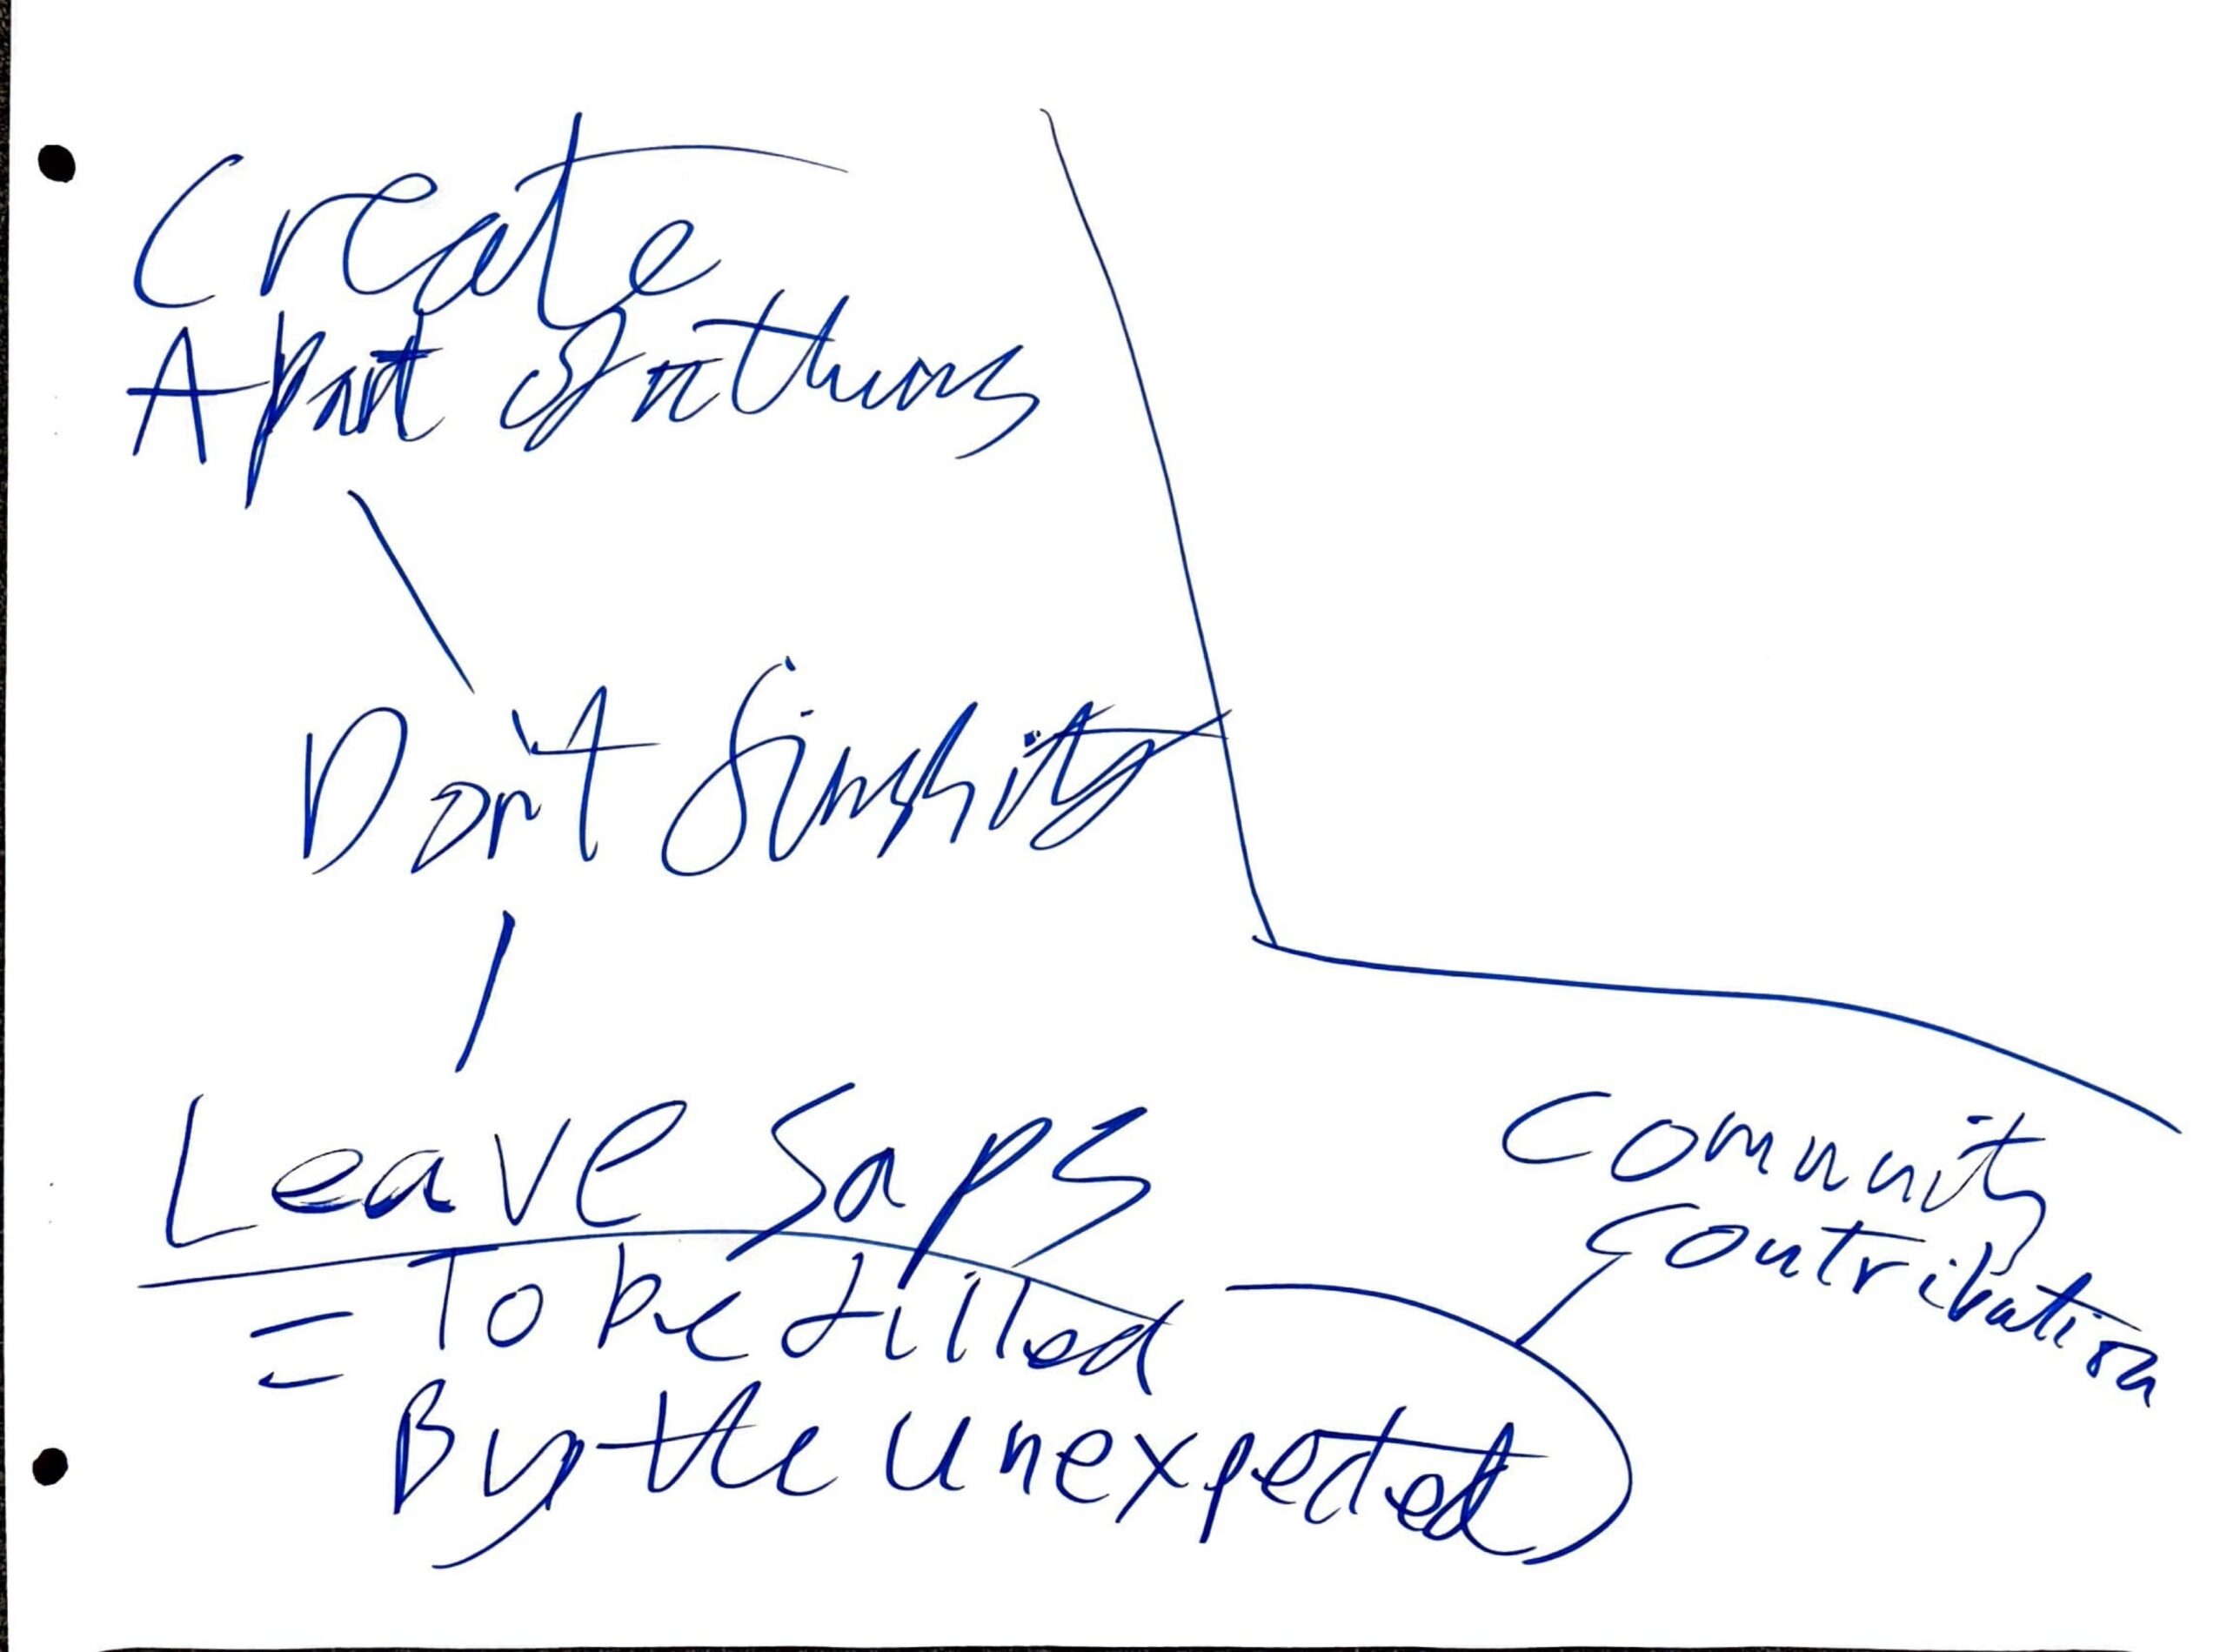 Create
A part of
Don't Simplify
Leave gaps
To be filled
By the unexpected
Community
Contribution